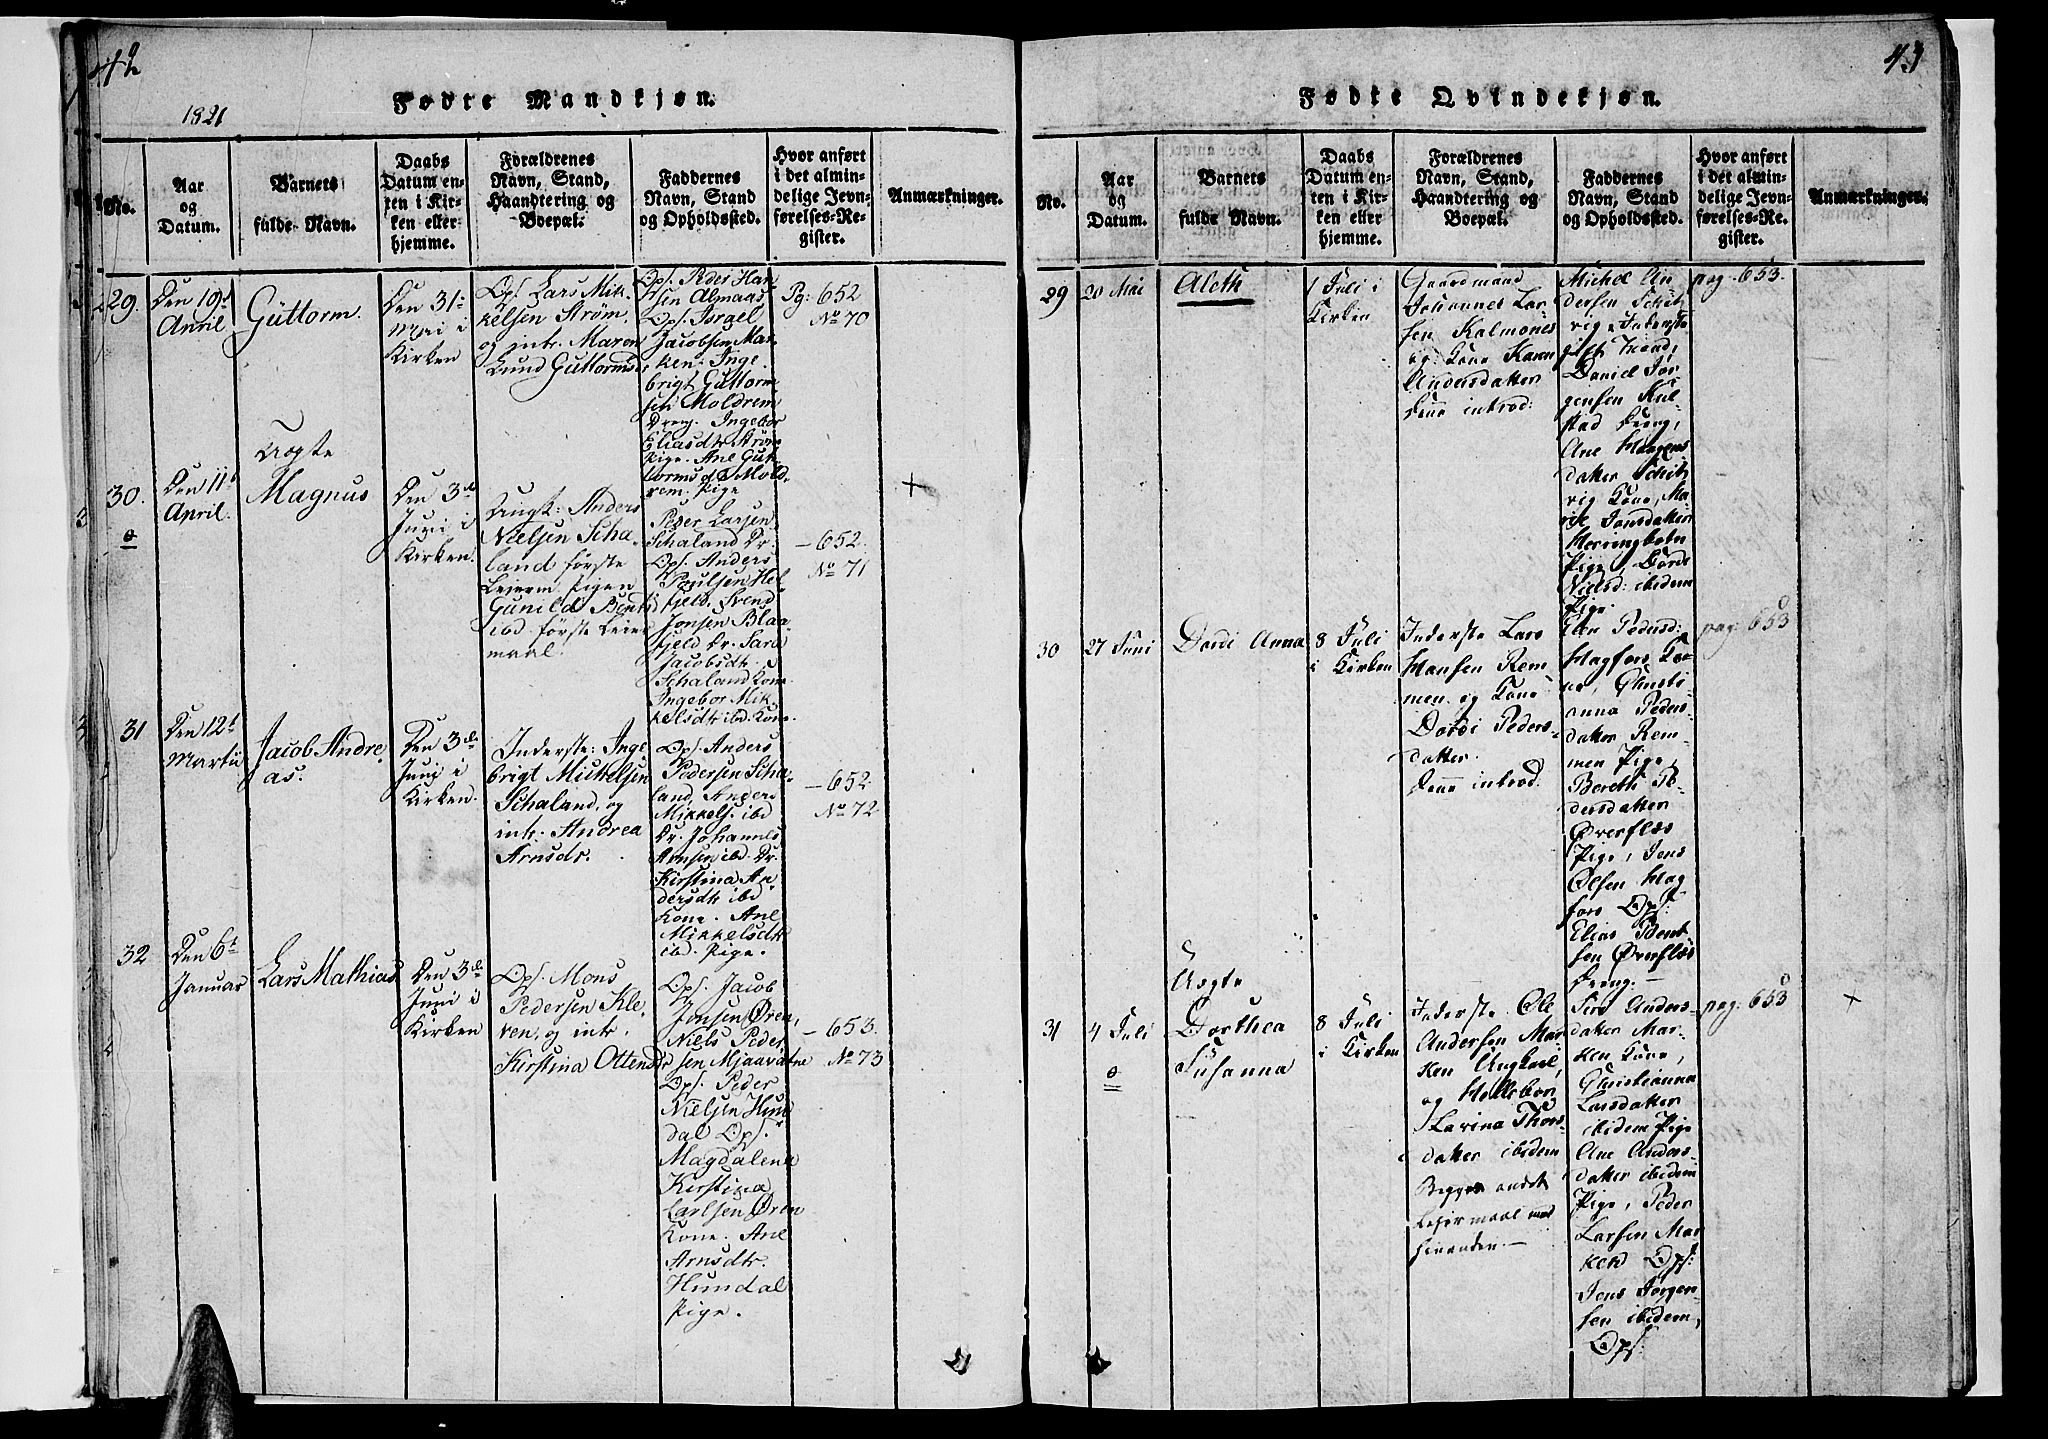 42
1821
Fødte Mandkjøn.
No.
Aar
og
Datum.
Barnets
fulde Navn.
Daabs
Datum en-
ten i Kir-
ken eller
hjemme.
Forældrenes
Navn, Stand,
Haandtering og
Boepæl.
Faddernes
Navn, Stand
og Opholdssted.
Hvor anført
i det almin-
delige Jevn-
førelses-Re-
gister.
Anmærkninger.
29.
Den 19d
April
Guttorm.
Den 31
Mai i
Kirken
Ops. Lars Mik-
kelsen Strøm,
og intr. Maron
Lund Guttormsdr
Ops. Peder Han-
sen Almaas
Ops. Israel
Jacobsen Mar-
ken. Inge-
brigt Guttorm
sen Moldrem
Dreng. Ingebor
Eliasdtr Strøm
Pige. Ane Gut-
tormsdtr Mold-
rem. Pige
Pg: 652
No 70
30.
Den 11t
April.
Uægte
Magnus
Den 3die
Juni i
Kirken.
Ungk: Anders
Nielsen Scha-
land første
Leierm Pigen
Gunild Bentsd
ibd første Leier
maal.
Peder Larsen
Schaland Dr.
Ops. Anders
Poulsen Hel-
fjeld. Svend
Jonsen Blaa-
fjeld Dr. Sara
Jacobsdtr
Schaland Kone.
Ingebor Mik-
kelsdtr ibd. Kone.
— 652.
No 71
+
31
Den 12t
Martii
Jacob Andre,
as.
Den 3die
Juni i
Kirken.
Inderste: Inge
brigt Michelsen
Schaland, og
intr. Andrea
Arnsdr.
Ops. Anders
Pedersen Scha-
land, Anders
Mikkels. ibd
Dr. Johannes
Arnsen ibd. Dr.
Kirstina An
dersdtr ibd
Kone. Ane
Mikkelsdtr
ibd. Pige.
— 652
No 72
32
Den 6t
Januar
Lars Mathias
Den 3die
Juni i
Kirken
Ops. Mons
Pedersen Kle-
ven, og intr.
Kirstina Ottensdr
Ops. Jacob
Jonsen Øren,
Niels Peder,
sen Mjaavatne
Ops. Peder
Nielsen Hun
dal Ops.
Magdalena
Kirstina
Carlsen Øren
Kone. Ane
Arnsdtr.
Hundal
Pige.
— 653.
No 73
43
Fødte Qvindekjøn.
No.
Aar
og
Datum.
Barnets
fulde Navn.
Daabs
Datum en-
ten i Kir-
ken eller
hjemme.
Forældrenes
Navn, Stand,
Haandtering og
Boepæl.
Faddernes
Navn, Stand
og Opholdssted.
Hvor anført
i det almin-
delige Jevn-
førelses-Re-
gister.
Anmærkninger.
29
20 Mai
Aleth
1 Juli i
Kirken
Gaardmand
Johannes Lar-
sen Kalmones
og Kone Karen
Andersdatter
Kone introd:
Michel An
dersen
Inderste
gift Mand,
Daniel Jør-
gensen Kul-
stad Dreng,
Ane
datter
Kone, Ma-
rit Jonsdatter
Herringbotn
Pige, Dordi
Nielsd: ibidem
Pige.
pag. 653.
30
27 Juni
Dordi Anna
8 Juli
i Kirken
Inderste Lars
Hansen Rem-
men og Kone
Dordi Peders-
datter.
Kone introd.
Elen Pedersd:
Hagfors Ko-
ne, Christi-
anna Peders-
datter Rem-
men Pige,
Bereth Pe-
dersdatter
Øverflæs
Pige, Jens
Olsen Hag-
fors Ops:
Elias Bent-
sen Øverflæs
Dreng.
pag: 653
31
4 Juli
Uægte
Dorthea
Susanna
8 Juli
i Kirken
Inderste Ole
Andersen Mar
ken Ungkarl,
og
Larina Thors-
datter ibidem
Begges andet
Leiermaal med
hinanden.—
Siri Anders-
datter Mar-
ken Kone,
Christianna
Larsdatter
ibidem Pige
Ane Anders-
datter ibidem
Pige, Peder
Larsen Mar
ken Ops:
Jens Jørgen-
sen ibidem,
Ops:
pag: 653
+